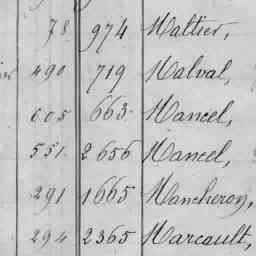 78 974 Maltier,
490 719 Malval,
605 663 Mancel,
551 2656 Mancel,
291 1665 Mancheron,
294 2365 Marcault,